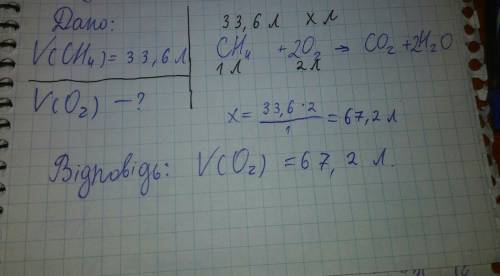 Дано:
V(CH₄) = 33,6 л
V(O₂) — ?
33,6 л x л
CH₄ + 2O₂ → CO₂ + 2H₂O
1 л 2 л
x = 33,6 · 2 / 1 = 67,2 л
Відповідь: V(O₂) = 67,2 л.